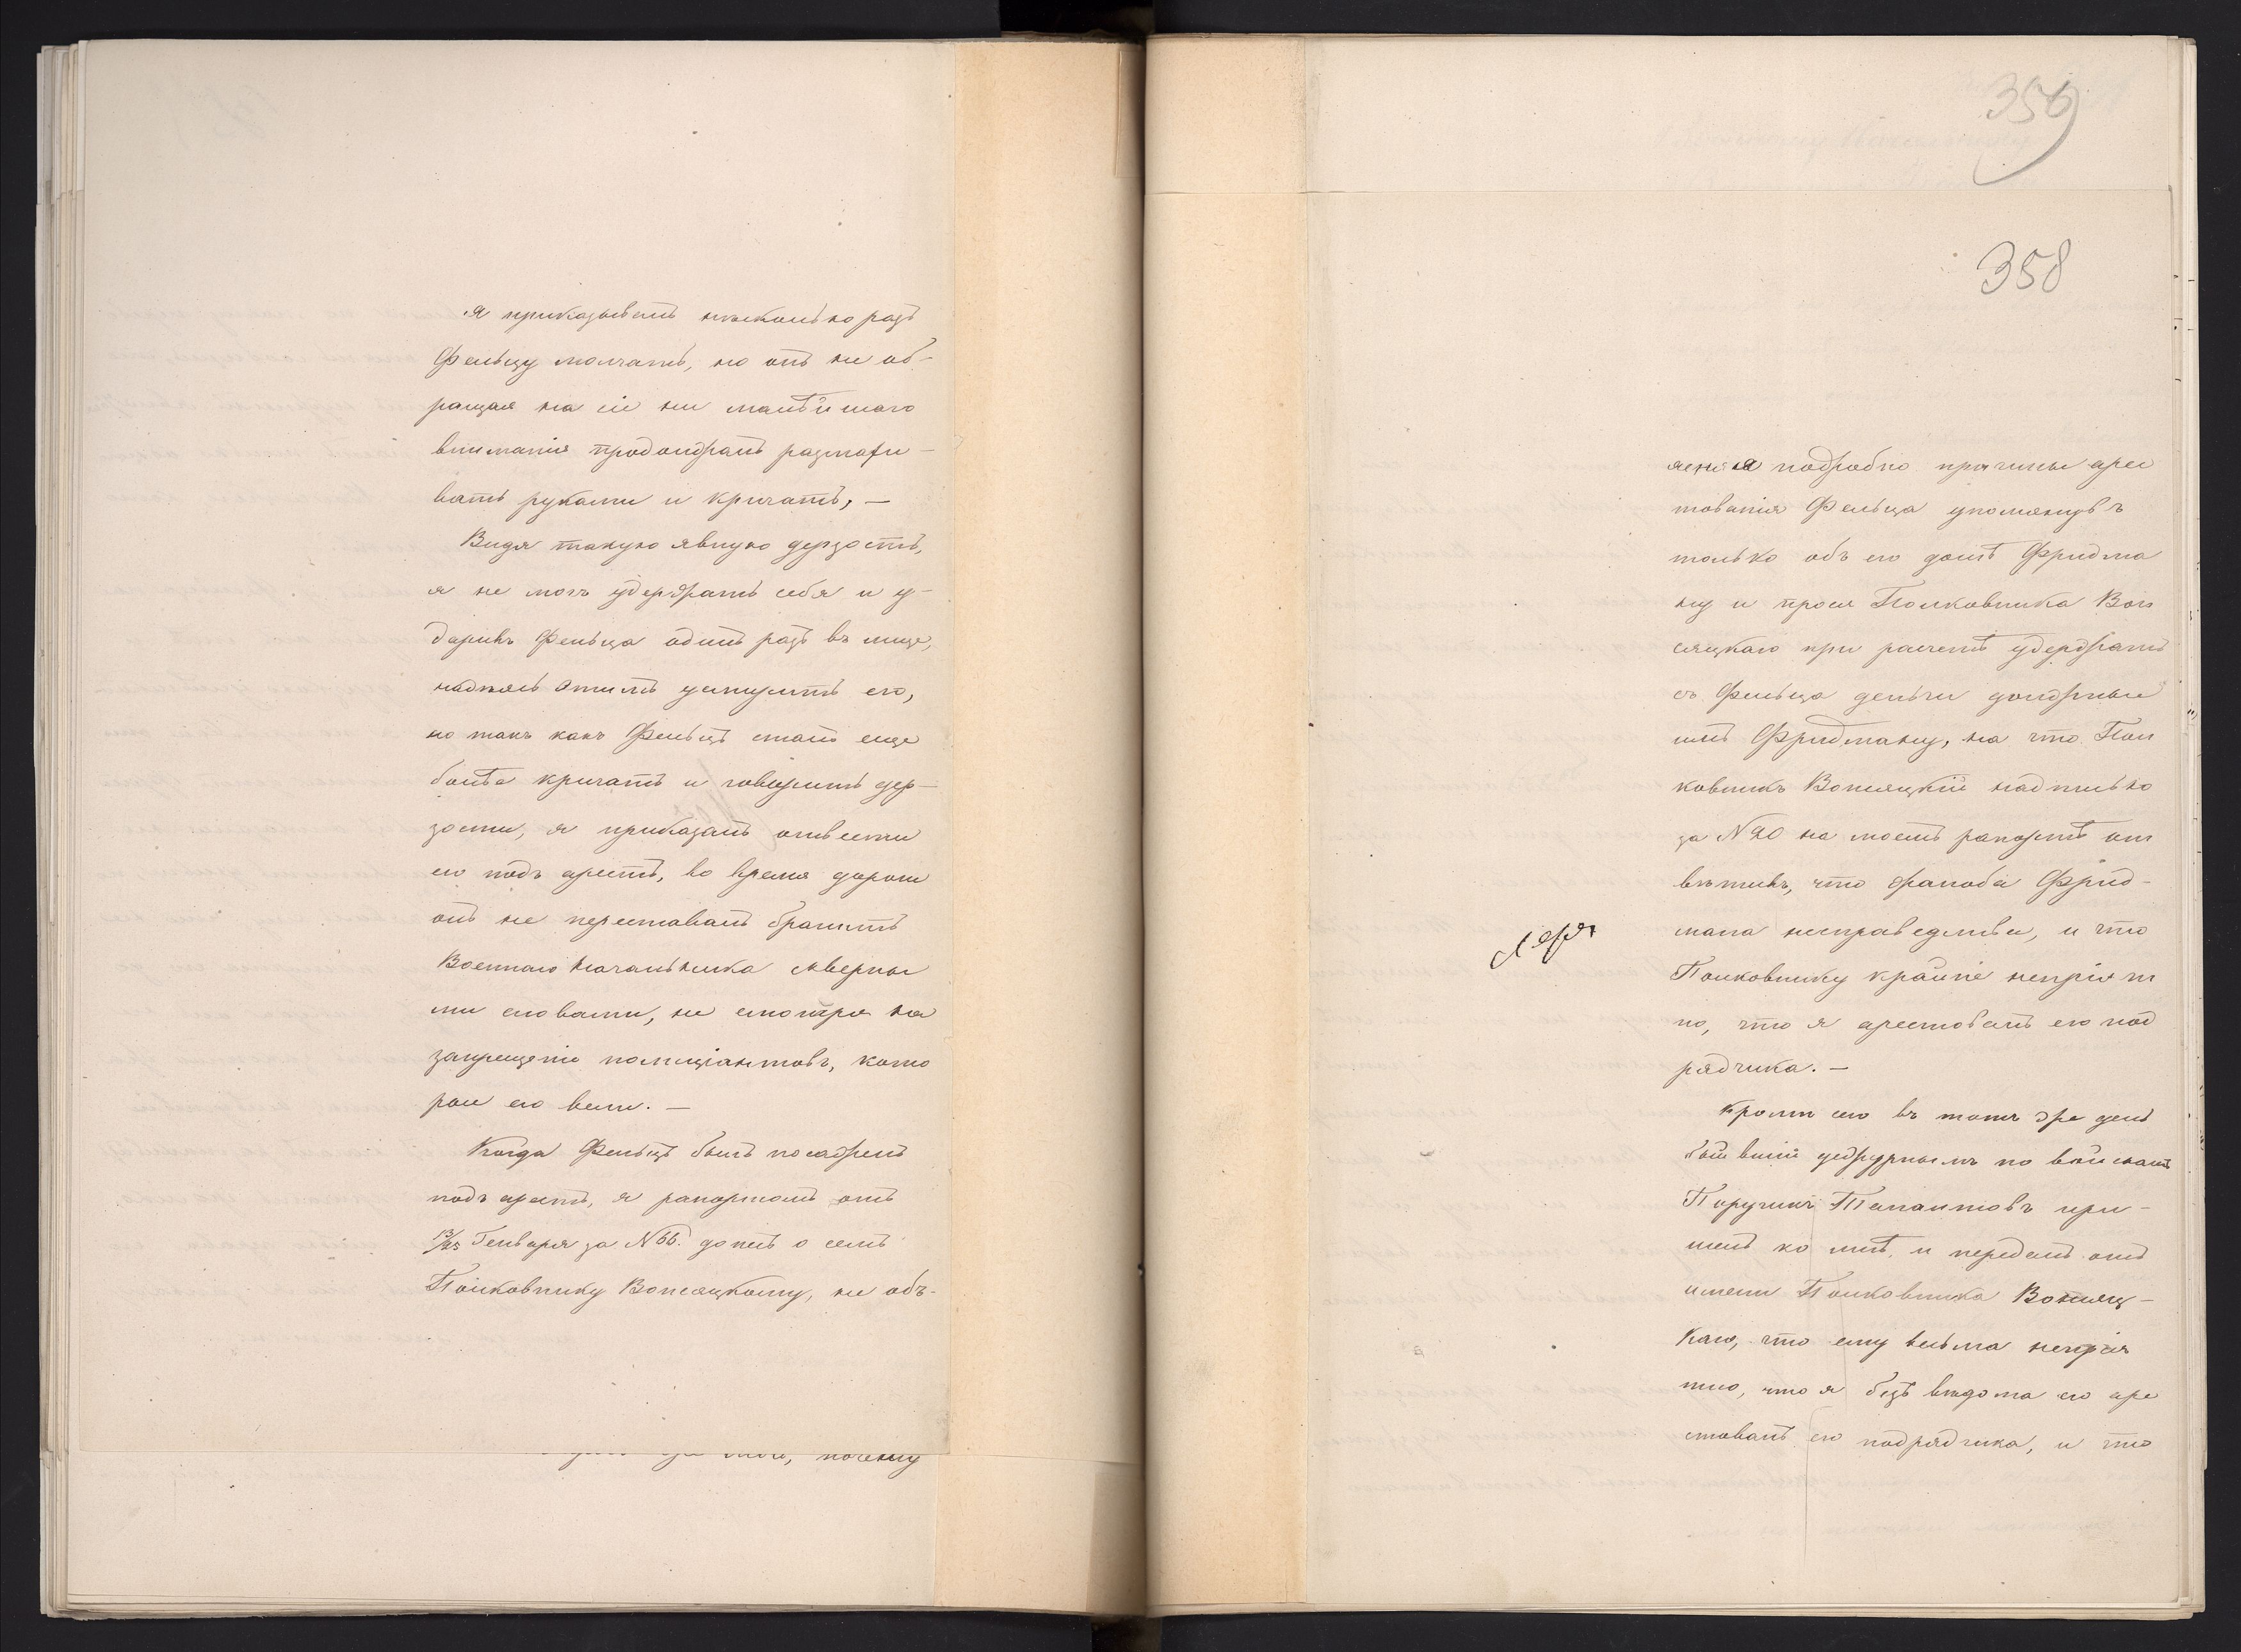 я приказывалъ нѣсколько разъ
Фельцу молчать, но онъ не об-
ращая на сіе ни малѣйшаго
вниманія продолжалъ размахи-
вать руками и кричать, —
Видя такую явную дерзость,
я не могъ удержать себя и у-
дарилъ Фельца одинъ разъ въ лице,
надѣясь этимъ усмирить его,
но такъ какъ Фельцъ сталъ еще
болѣе кричать и говорить дер-
зости, я приказалъ отвести
его подъ арестъ, во время дороги
онъ не переставалъ бранить
Военнаго Начальника скверны
ми словами, не смотря на
запрещеніе полиціантовъ, кото
рые его вели. —
Когда Фельцъ былъ посаженъ
подъ арестъ, я рапортомъ отъ
13/25 Генваря за N 66. донесъ о семъ
Полковнику Вонсяцкому, не объ-
почему
356
358
ясняя подробно причины арес
тованія Фельца упомянувъ
только объ его долгѣ Фридма
ну и прося Полковника Вон
сяцкаго при расчетѣ удержать
съ Фельца деньги должные
имъ Фридману, на что Пол
ковникъ Вонсяцкій надписью
за N 20 на моемъ рапортѣ от
вѣтилъ, что жалоба Фрид-
мана несправедлива, и что
Полковнику крайне непріят
но, что я арестовалъ его под
рядчика. —
Кромѣ сего въ тотъ же день
бывшій дежурнымъ по войскамъ
Поручикъ при-
шелъ ко мнѣ и передалъ отъ
имени Полковника Вонсяц-
каго, что ему весьма непрія
тно, что я безъ вѣдома его аре
стовалъ его подрядчика, и что